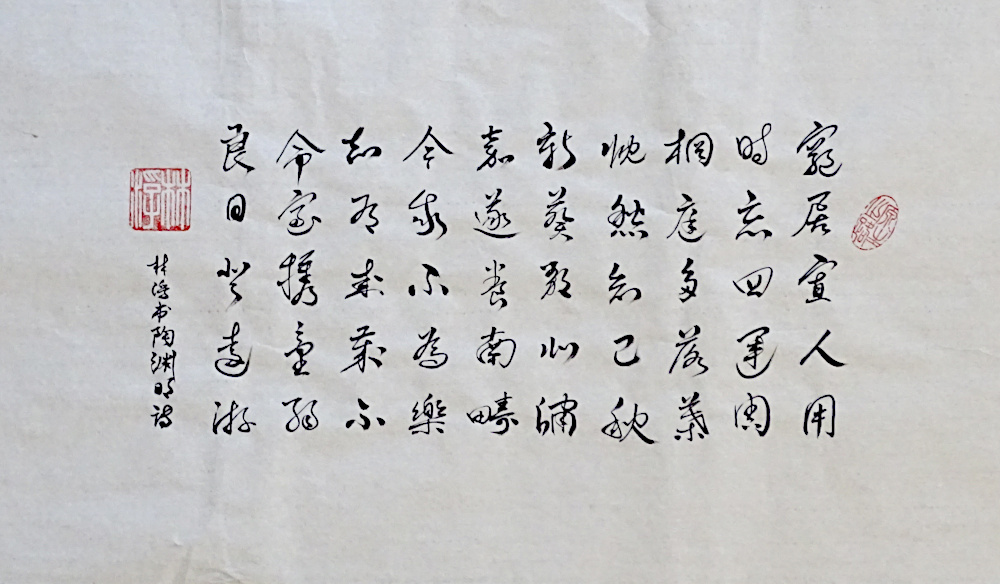 窮居寡人用
时忘四運周
櫚庭多落葉
慨然知已秋
新葵郁北牖
嘉穟養南疇
今我不為樂
知有来歲不
命室攜童弱
良日登遠游
林浮書陶渊明詩
林浮